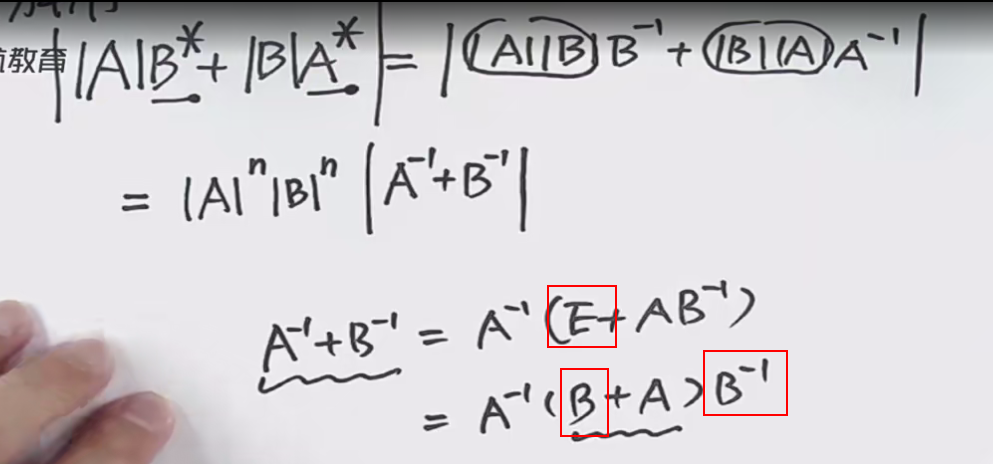 航教育
||A|B* + |B|A*| = ||A||B|B⁻¹ + |B||A|A⁻¹|
= |A|ⁿ|B|ⁿ|A⁻¹+B⁻¹|
A⁻¹+B⁻¹ = A⁻¹(E+AB⁻¹)
= A⁻¹(B+A)B⁻¹